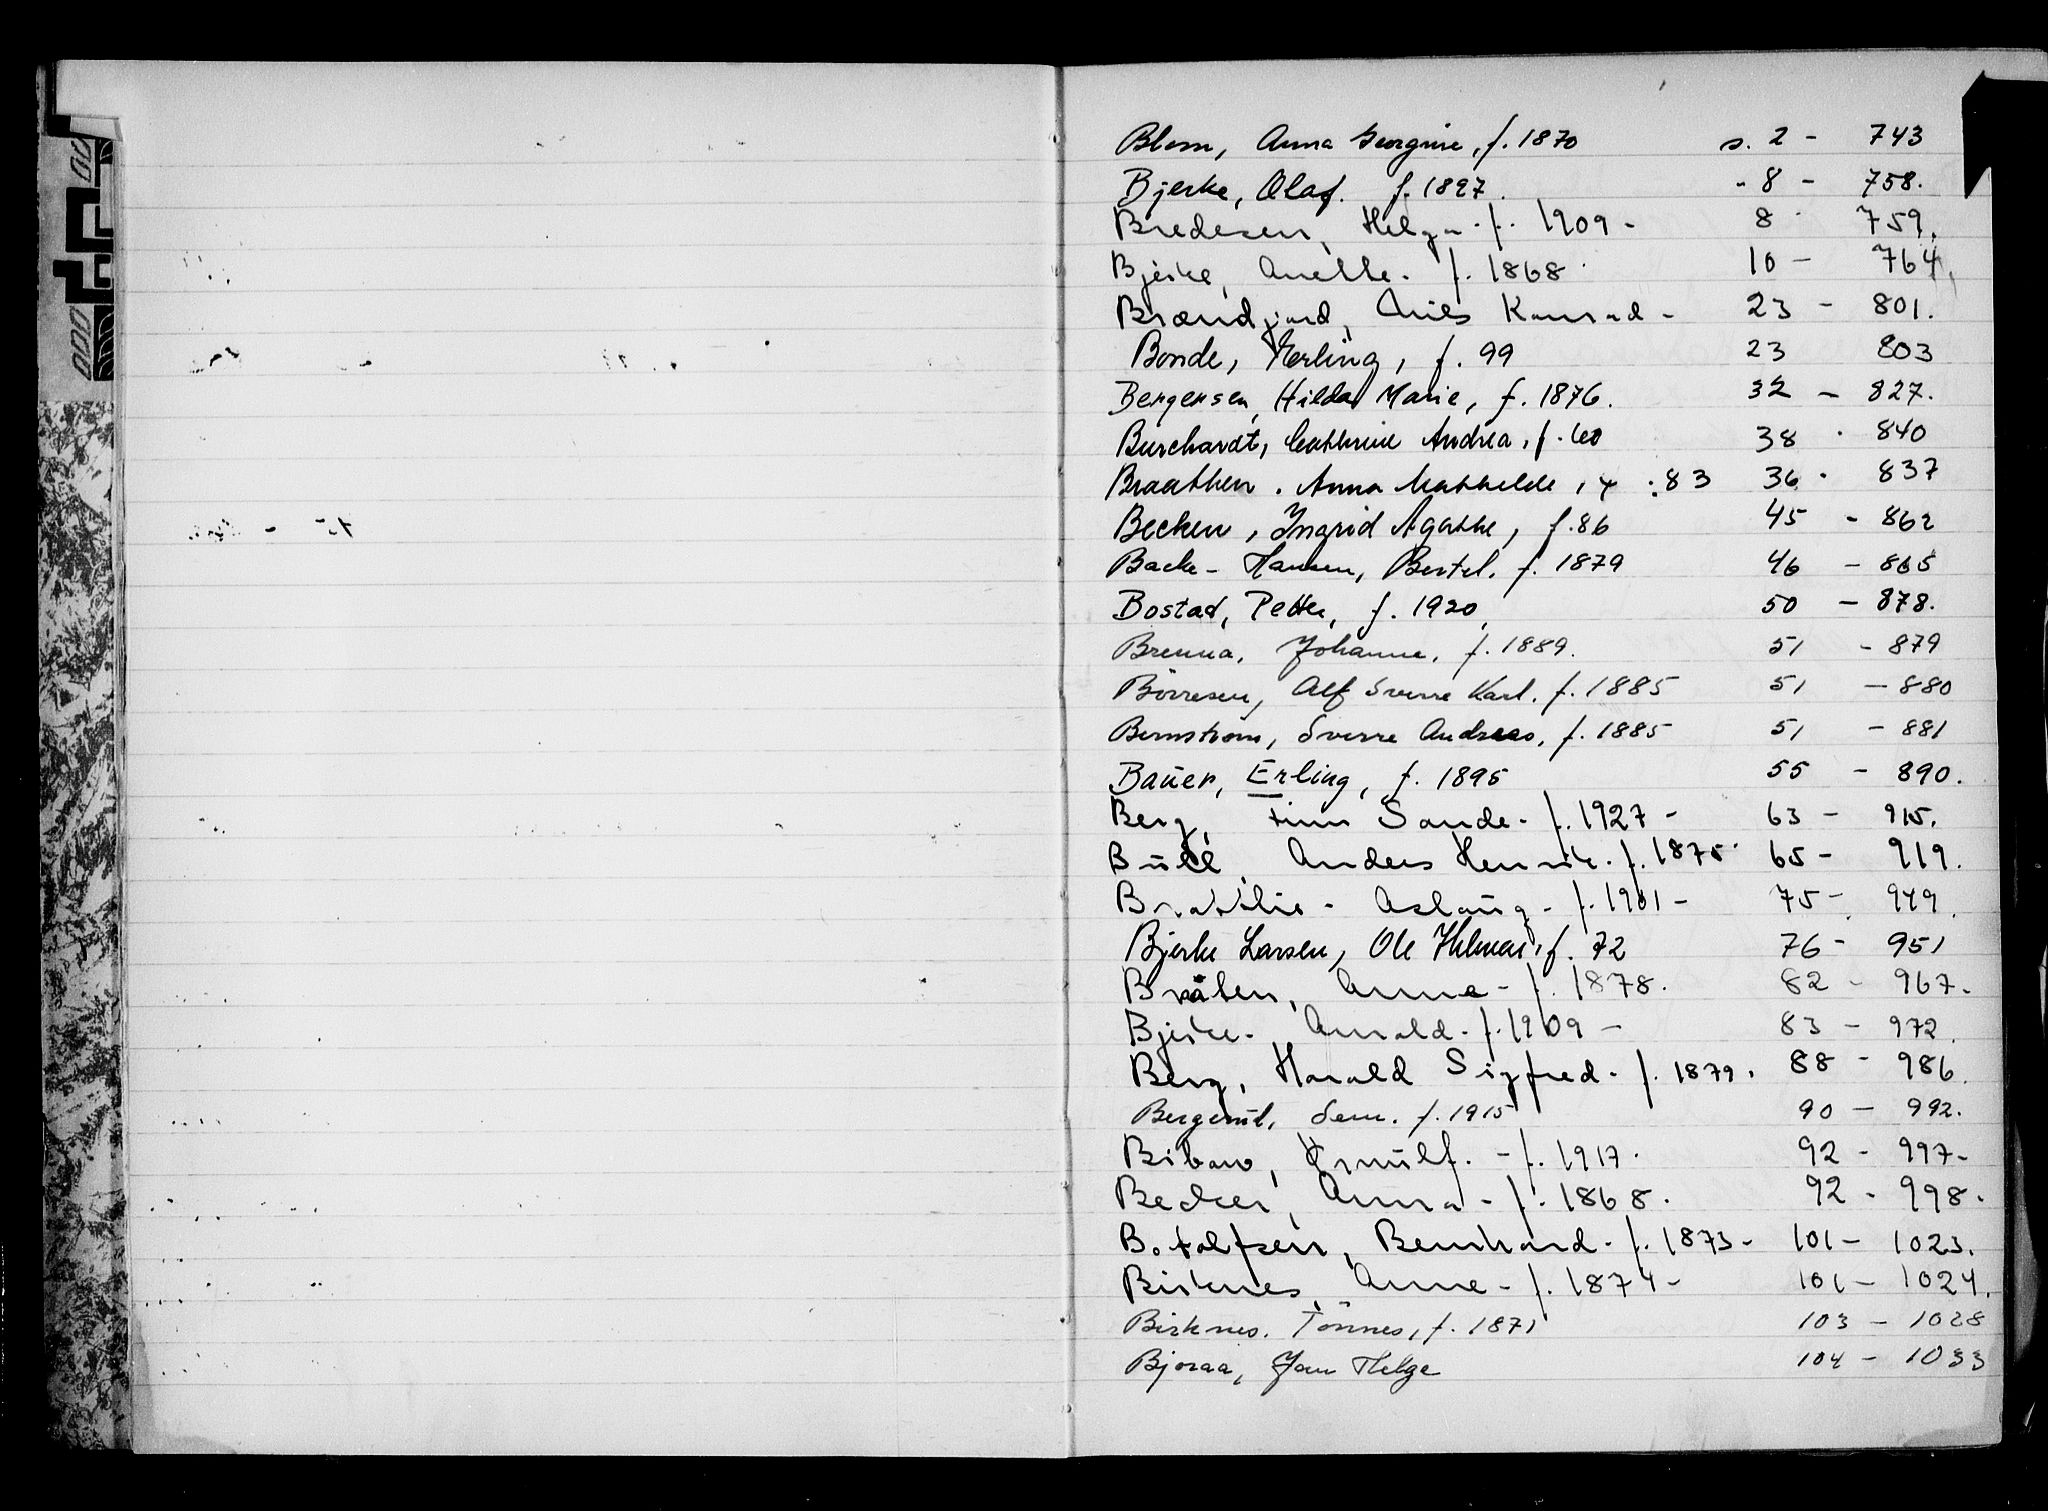 Blom, Anna Georgine, f. 1870 s. 2 - 743
Bjerke, Olaf. f. 1897. " 8 - 758.
Bredesen, Helga - f. 1909 - 8 - 759.
Bjerke, Anette - f. 1868 10 - 764.
Brændgard, Nils Konrad - 23 - 801.
Bonde, Erling, f. 99 23 803
Bergersen, Hilda Marie, f. 1876. 32 - 827.
Burchardt, Cathrine Andrea, f. 60 38 - 840
Braathen, Anna Mathilde, f. 83 36 - 837
Becken, Ingrid Agathe, f. 86 45 - 862
Backe-Hansen, Bertel. f. 1879 46 - 865
Bostad, Petter, f. 1920, 50 - 878.
Brenna, Johanne, f. 1889. 51 - 879
Börresen, Alf Sverre Karl. f. 1885 51 - 880
Bernström, Sverre Andreas, f. 1885 51 - 881
Bauer, Erling, f. 1895 55 - 890.
Berg, Finn Sande - f. 1927 - 63 - 915.
Bull, Anders Henrik - f. 1875 65 - 919.
Brattlie - Aslaug - f. 1901 - 75 - 949.
Bjerke Larsen, Ole Hilmar, f. 72 76 - 951
Bråten, Anna - f. 1878. 82 - 967.
Bjerke - Arnold - f. 1909 - 83 - 972.
Berg, Harald Sigfred - f. 1879. 88 - 986.
Bergerud, Sem. f. 1915 90 - 992.
Bibow, Ørnulf. - f. 1917. 92 - 997-
Becker, Anna - f. 1868. 92 - 998.
Botolfsen, Bernhard - f. 1873 - 101 - 1023.
Birknes, Anne - f. 1874 - 101 - 1024.
Birknes, Tönnes, f. 1871 103 - 1028
Bjoraa, Jan Helge 104 - 1033